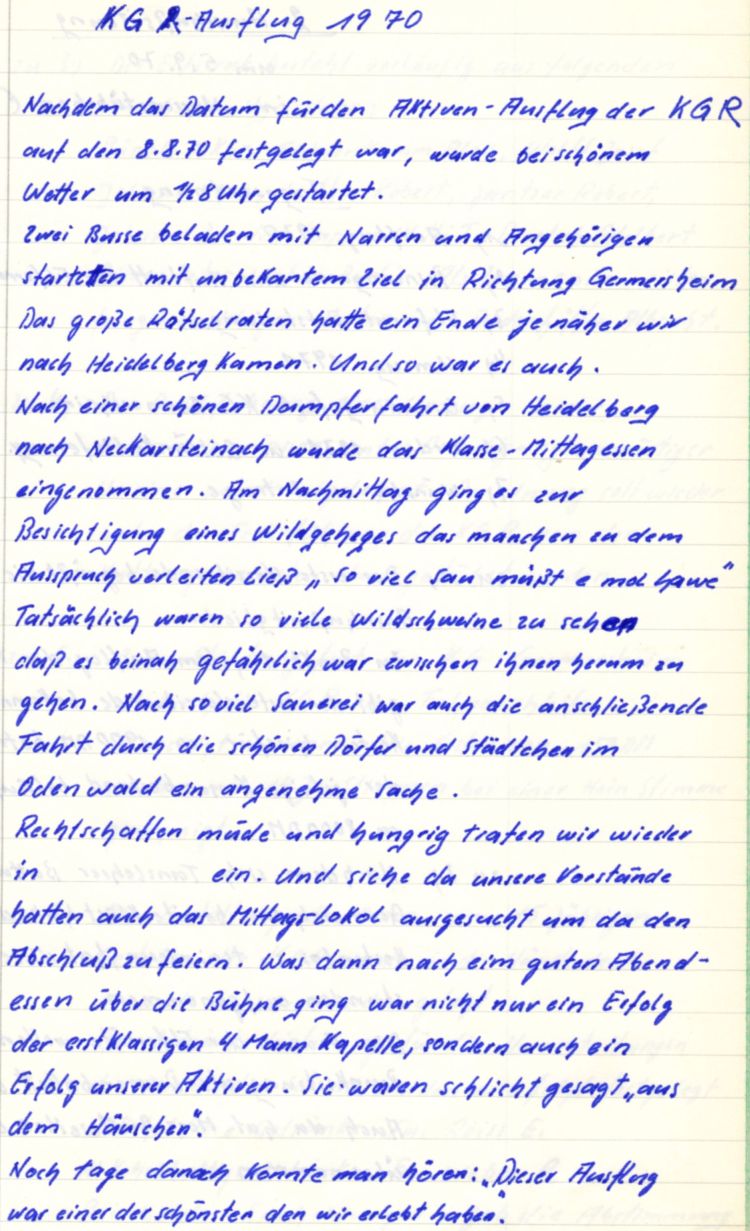 KGR-Ausflug 1970
Nachdem das Datum für den Aktiven-Ausflug der KGR
auf den 8.8.70 festgelegt war, wurde bei schönem
Wetter um 1/2 8 Uhr gestartet.
Zwei Busse beladen mit Narren und Angehörigen
starteten mit unbekantem Ziel in Richtung Germersheim
Das große Rätselraten hatte ein Ende je näher wir
nach Heidelberg kamen. Und so war es auch.
Nach einer schönen Dampferfahrt von Heidelberg
nach Neckarsteinach wurde das Klasse-Mittagessen
eingenommen. Am Nachmittag ging es zur
Besichtigung eines Wildgeheges das manchen zu dem
Ausspruch verleiten ließ „so viel Sau müßt e mol hawe"
Tatsächlich waren so viele Wildschweine zu sehen
daß es beinah gefährlich war zwischen ihnen herum zu
gehen. Nach soviel Sauerei war auch die anschließende
Fahrt durch die schönen Dörfer und Städtchen im
Odenwald ein angenehme Sache.
Rechtschaffen müde und hungrig trafen wir wieder
in ein. Und siehe da unsere Vorstände
hatten auch das Mittags-Lokal ausgesucht um da den
Abschluß zu feiern. Was dann nach eim guten Abend-
essen über die Bühne ging war nicht nur ein Erfolg
der erstklassigen 4 Mann Kapelle, sondern auch ein
Erfolg unserer Aktiven. Sie waren schlicht gesagt „aus
dem Häuschen".
Noch tage danach konnte man hören: „Dieser Ausflug
war einer der schönsten den wir erlebt haben."